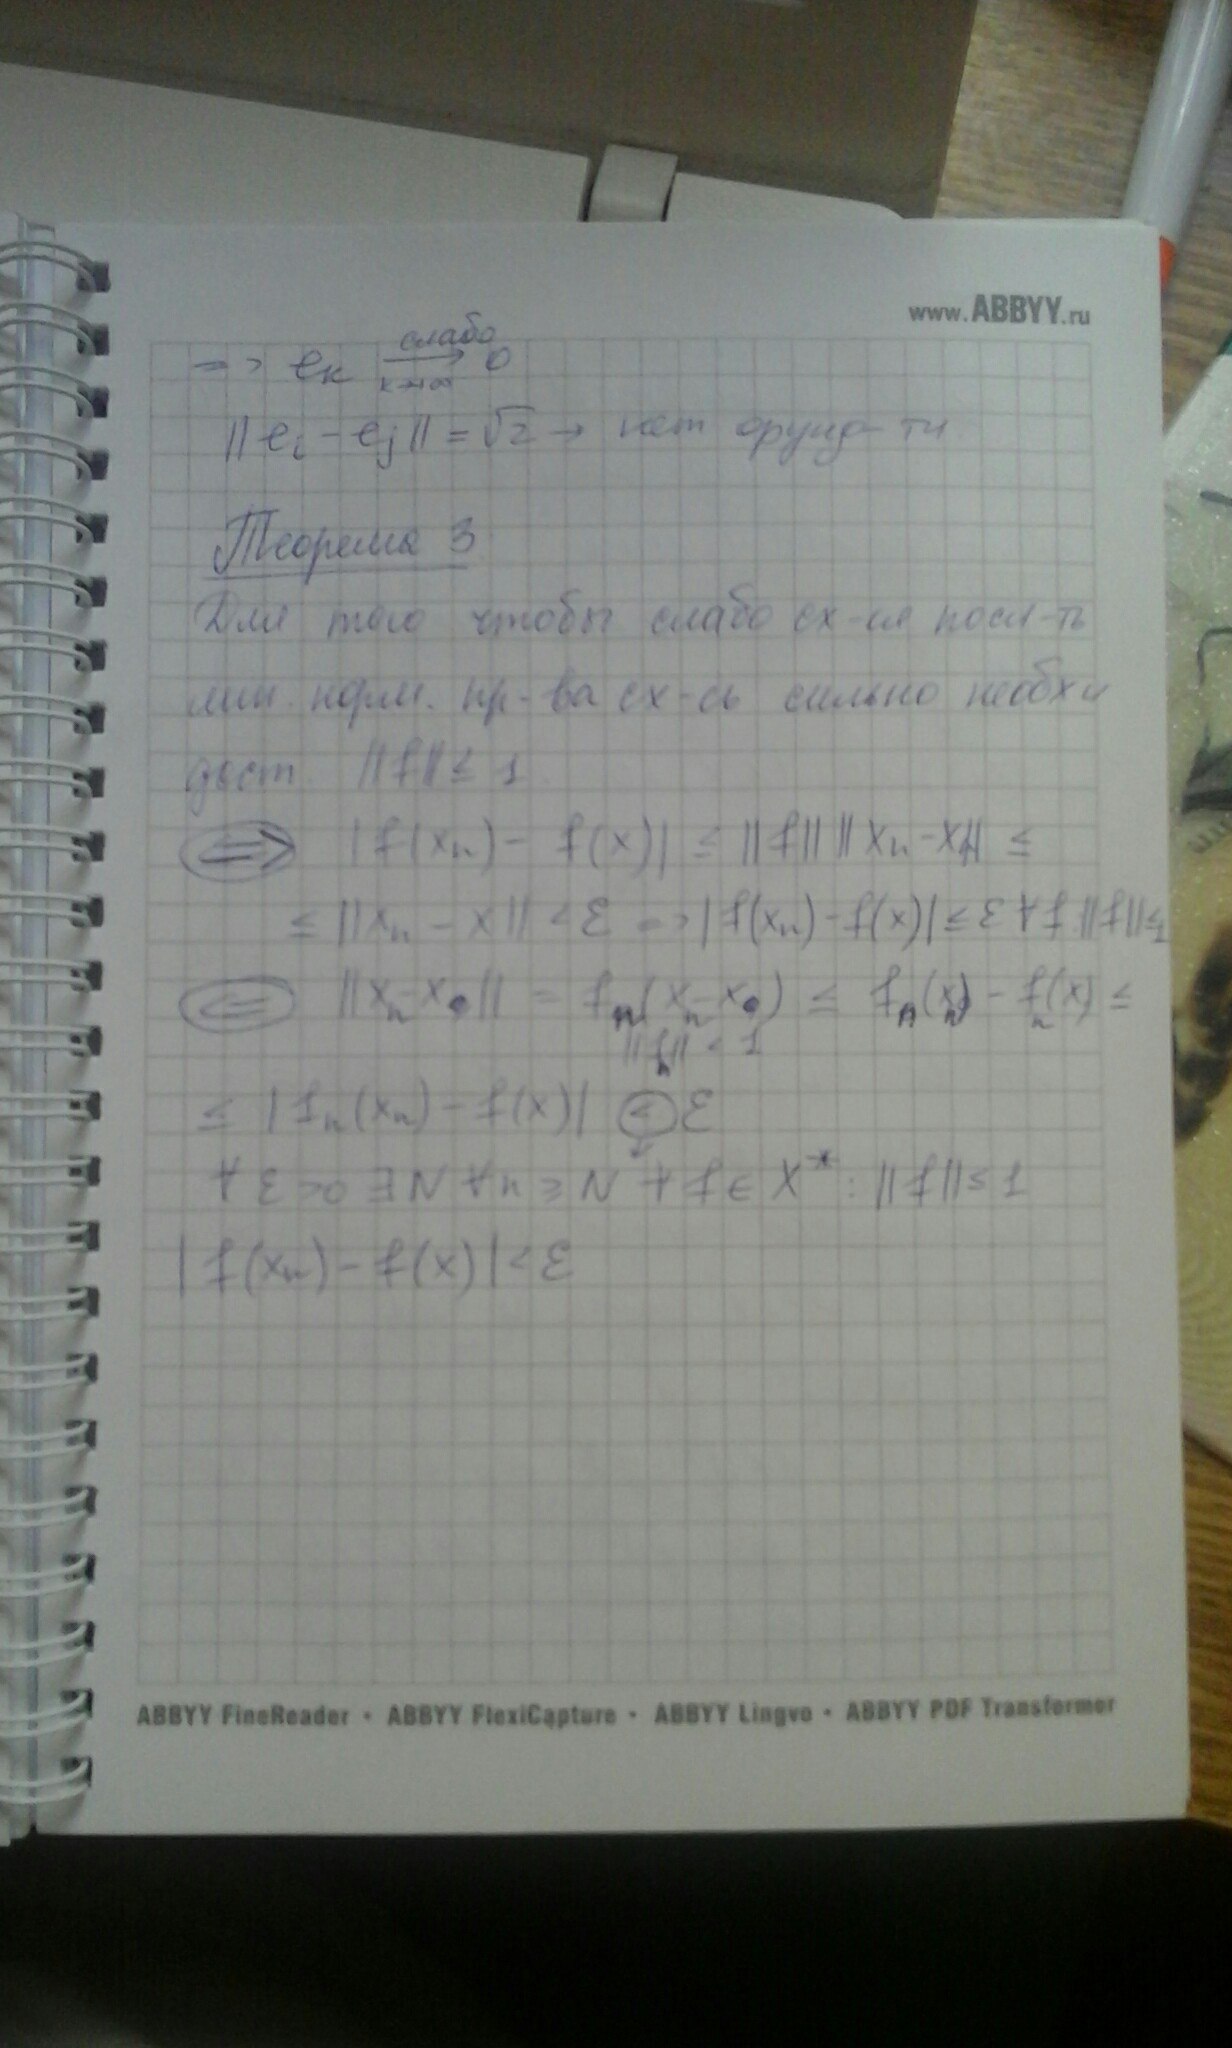 www.ABBYY.ru
=> eк слабо→ 0
к→∞
||ei - ej|| = √2 → нет фунд-ти
Теорема 3
Для того чтобы слабо сх-ся посл-ть
лин. норм. пр-ва сх-сь сильно необх и
дост. ||f|| ≤ 1
=> |f(xn) - f(x)| ≤ ||f|| ||xn - x|| ≤
≤ ||xn - x|| < ε => |f(xn) - f(x)| ≤ ε ∀f: ||f|| ≤ 1
<= ||xn - x|| = fn(xn - x) ≤ fn(xn) - fn(x) ≤
||fn|| < 1
≤ |fn(xn) - f(x)| ≤ ε
∀ε > 0 ∃N ∀n ≥ N ∀f ∈ X*: ||f|| ≤ 1
|f(xn) - f(x)| < ε
ABBYY FineReader • ABBYY FlexiCapture • ABBYY Lingvo • ABBYY PDF Transformer